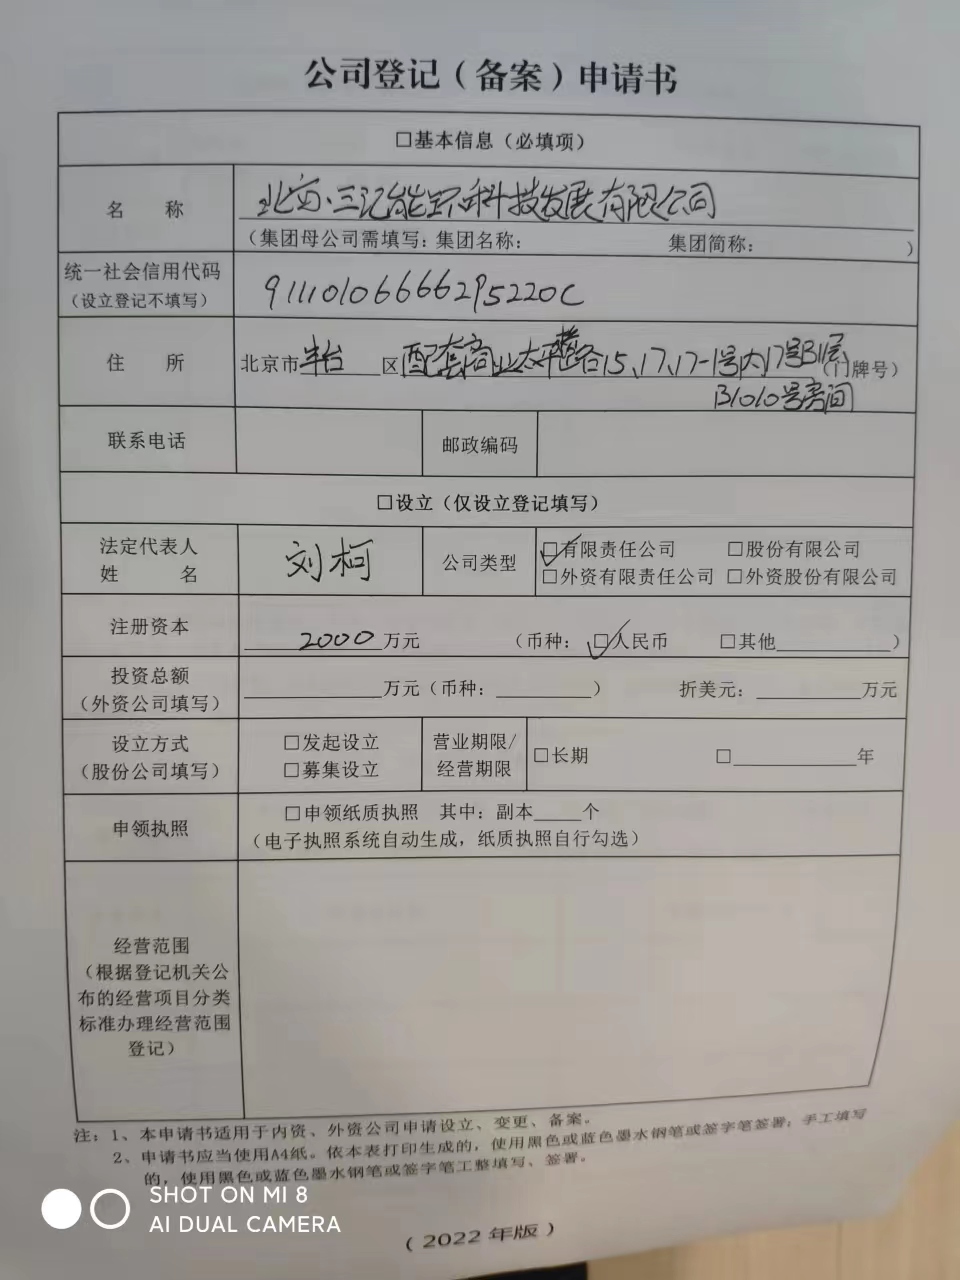 公司登记（备案）申请书
□基本信息（必填项）
名 称 北京三记能环科技发展有限公司
（集团母公司需填写：集团名称： 集团简称： ）
统一社会信用代码
（设立登记不填写） 91110106666295220C
住 所 北京市丰台区配套商业太平桥路15、17、17-1号内17号B1层（门牌号）
B1010号房间
联系电话 邮政编码
□设立（仅设立登记填写）
法定代表人
姓 名 刘柯 公司类型 □有限责任公司 □股份有限公司
□外资有限责任公司 □外资股份有限公司
注册资本 2000万元 （币种：□人民币 □其他 ）
投资总额
（外资公司填写） 万元（币种： ） 折美元： 万元
设立方式
（股份公司填写） □发起设立
□募集设立 营业期限/
经营期限 □长期 □ 年
申领执照 □申领纸质执照 其中：副本 个
（电子执照系统自动生成，纸质执照自行勾选）
经营范围
（根据登记机关公
布的经营项目分类
标准办理经营范围
登记）
注：1、本申请书适用于内资、外资公司申请设立、变更、备案。
2、申请书应当使用A4纸。依本表打印生成的，使用黑色或蓝色墨水钢笔或签字笔签署；手工填写
的，使用黑色或蓝色墨水钢笔或签字笔工整填写、签署。
SHOT ON MI 8
AI DUAL CAMERA
（2022年版）